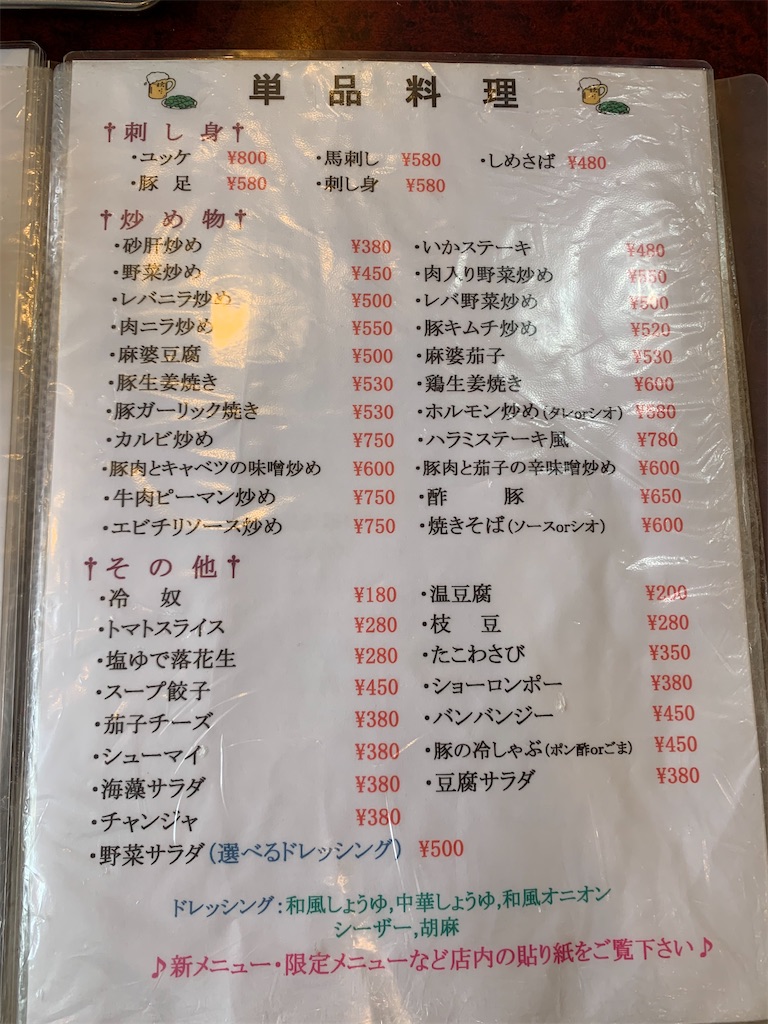 単品料理
†刺し身†
・ユッケ ¥800 ・馬刺し ¥580 ・しめさば ¥480
・豚足 ¥580 ・刺し身 ¥580
†炒め物†
・砂肝炒め ¥380 ・いかステーキ ¥480
・野菜炒め ¥450 ・肉入り野菜炒め ¥550
・レバニラ炒め ¥500 ・レバ野菜炒め ¥500
・肉ニラ炒め ¥550 ・豚キムチ炒め ¥520
・麻婆豆腐 ¥500 ・麻婆茄子 ¥530
・豚生姜焼き ¥530 ・鶏生姜焼き ¥600
・豚ガーリック焼き ¥530 ・ホルモン炒め(タレorシオ) ¥580
・カルビ炒め ¥750 ・ハラミステーキ風 ¥780
・豚肉とキャベツの味噌炒め ¥600 ・豚肉と茄子の辛味噌炒め ¥600
・牛肉ピーマン炒め ¥750 ・酢豚 ¥650
・エビチリソース炒め ¥750 ・焼きそば(ソースorシオ) ¥600
†その他†
・冷奴 ¥180 ・温豆腐 ¥200
・トマトスライス ¥280 ・枝豆 ¥280
・塩ゆで落花生 ¥280 ・たこわさび ¥350
・スープ餃子 ¥450 ・ショーロンポー ¥380
・茄子チーズ ¥380 ・バンバンジー ¥450
・シューマイ ¥380 ・豚の冷しゃぶ(ポン酢orごま) ¥450
・海藻サラダ ¥380 ・豆腐サラダ ¥380
・チャンジャ ¥380
・野菜サラダ(選べるドレッシング) ¥500
ドレッシング:和風しょうゆ,中華しょうゆ,和風オニオン
シーザー,胡麻
♪新メニュー・限定メニューなど店内の貼り紙をご覧下さい♪